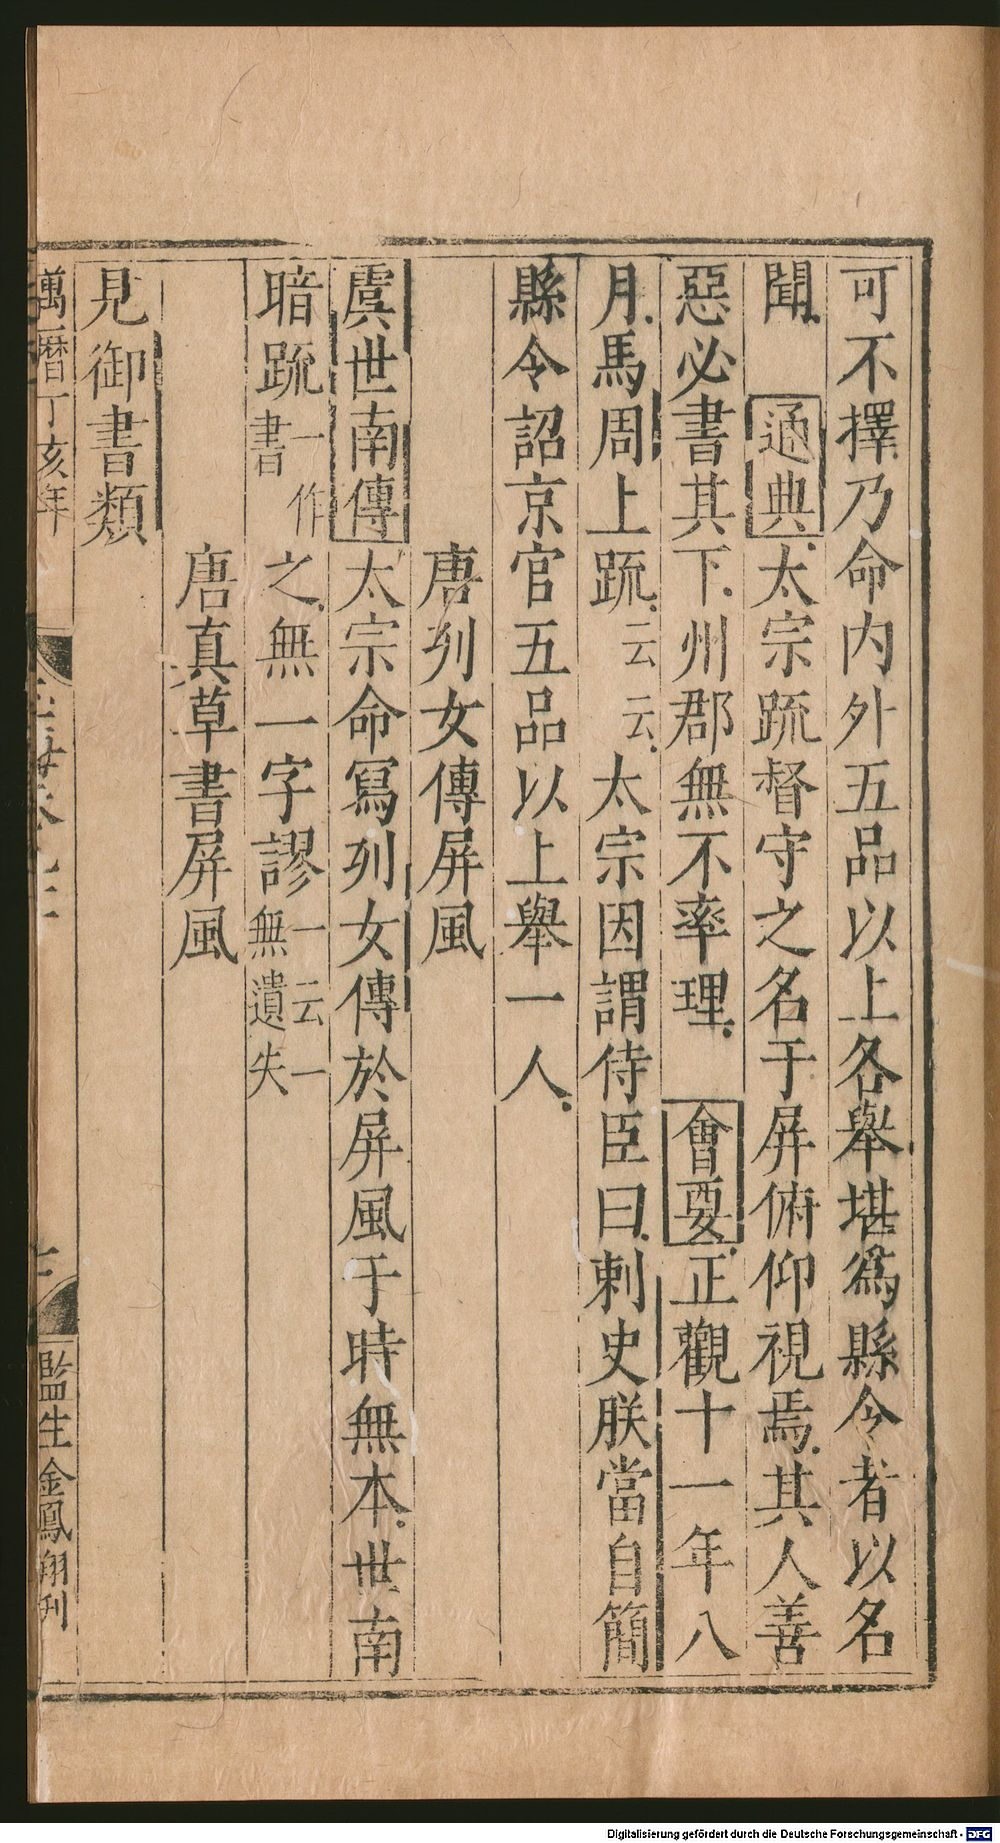 可不擇乃命内外五品以上各舉堪爲縣令者以名
聞 通典太宗䟽督守之名于屛俯仰視焉其人善
惡必書其下州郡無不率理 會要正觀十一年八
月馬周上䟽云云太宗因謂侍臣曰刺史朕當自簡
縣令詔京官五品以上舉一人
唐列女傳屏風
虞世南傳太宗命寫列女傳於屏風于時無本世南
暗䟽一作書之無一字謬一云一無遺失
唐真草書屏風
見御書類
萬曆丁亥年
監生金鳳翔刊
Digitalisierung gefördert durch die Deutsche Forschungsgemeinschaft - DFG